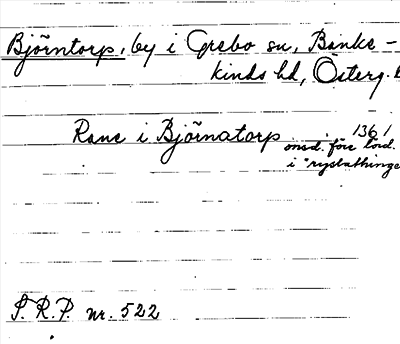 Björntorp, by i Grebo sn, Banke-
kinds hd, Österg.
Rane i Björnatorp 1361
onsd. före
i "rystathinge
S.R.P. nr. 522